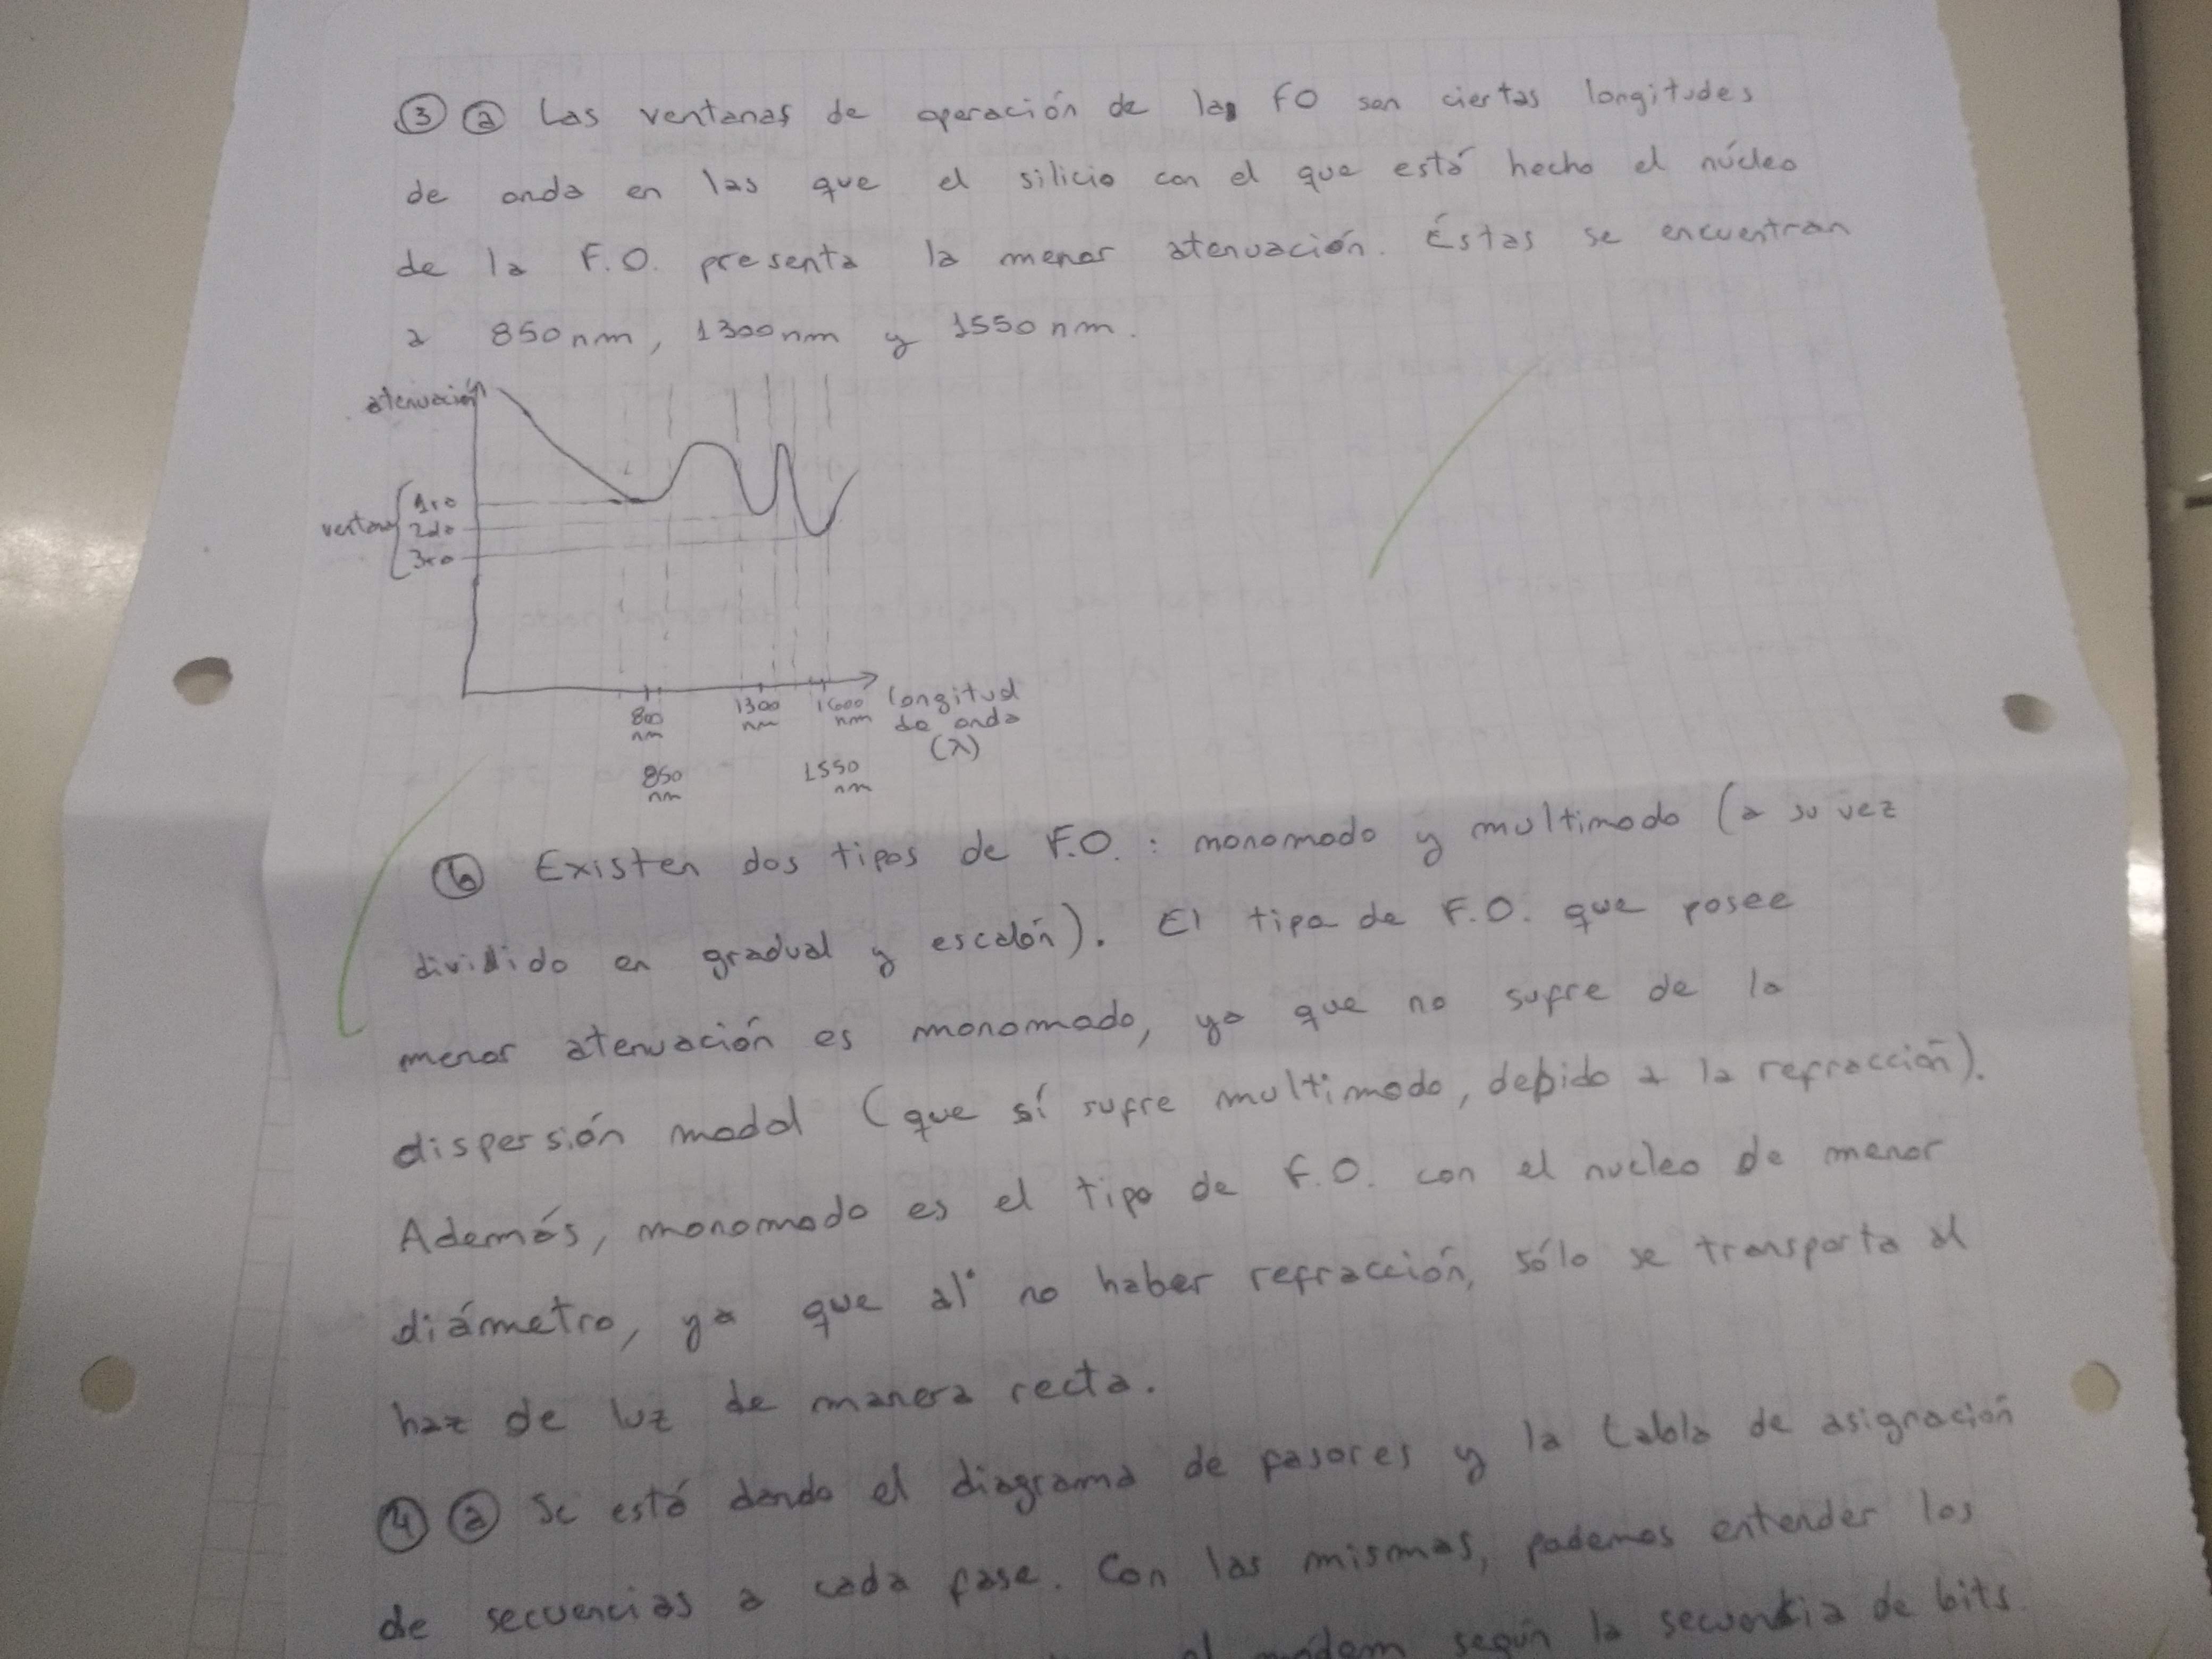 ③ ⓐ Las ventanas de operación de las FO son ciertas longitudes
de onda en las que el silicio con el que está hecho el núcleo
de la F.O. presenta la menor atenuación. Éstas se encuentran
a 850nm, 1300nm y 1550nm.
atenuación
ventana
1ra
2da
3ra
800 nm
1300 nm
1600 nm
longitud
de onda
(λ)
850 nm
1550 nm
ⓑ Existen dos tipos de F.O.: monomodo y multimodo (a su vez
dividido en gradual y escalón). El tipo de F.O. que posee
menor atenuación es monomodo, ya que no sufre de la
dispersión modal (que sí sufre multimodo, debido a la refracción).
Además, monomodo es el tipo de F.O. con el nucleo de menor
diámetro, ya que al no haber refracción, sólo se transporta el
haz de luz de manera recta.
④ ⓐ Se está dando el diagrama de fasores y la tabla de asignación
de secuencias a cada fase. Con las mismas, podemos entender los
el módem según la secuencia de bits.